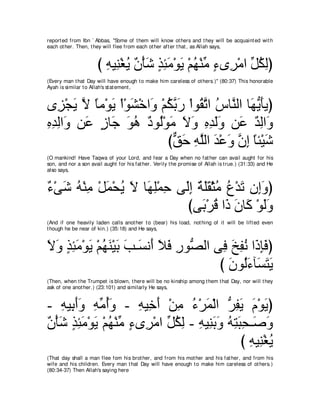 reported from Ibn `Abbas, "Some of them will know others and they will be acquainted with
each other. Then, they will flee from each other after that, as Allah says,
﴿لِكُلِّ امْرِىءٍ مِّنْهُمْ يَوْمَئِذٍ شَأْنٌ يُغْنِيهِ ﴾
(Every man that day will have enough to make him careless of others.)'' (80:37) This honorable
Ayah is similar to Allah's statement,
﴿يأَيُّهَا النَّاسُ اتَّقُواْ رَبَّكُمْ وَاخْشَوْاْ يَوْماً لاَّ يَجْزِى
وَالِدٌ عَن وَلَدِهِ وَلاَ مَوْلُودٌ هُوَ جَازٍ عَن وَالِدِهِ
شَيْئاً إِنَّ وَعْدَ اللَّهِ حَقٌّ﴾
(O mankind! Have Taqwa of your Lord, and fear a Day when no father can avail aught for his
son, nor a son avail aught for his father. Verily the promise of Allah is true.) (31:33) and He
also says,
﴿وَإِن تَدْعُ مُثْقَلَةٌ إِلَى حِمْلِهَا لاَ يُحْمَلْ مِنْهُ شَىْءٌ
وَلَوْ كَانَ ذَا قُرْبَى﴾
(And if one heavily laden calls another to (bear) his load, nothing of it will be lifted even
though he be near of kin.) (35:18) and He says,
﴿فَإِذَا نُفِخَ فِى الصُّورِ فَلاَ أَنسَـبَ بَيْنَهُمْ يَوْمَئِذٍ وَلاَ
يَتَسَآءَلُونَ ﴾
(Then, when the Trumpet is blown, there will be no kinship among them that Day, nor will they
ask of one another.) (23:101) and similarly He says,
﴿يَوْمَ يَفِرُّ الْمَرْءُ مِنْ أَخِيهِ - وَأُمِّهِ وَأَبِيهِ -
وَصَـحِبَتِهُ وَبَنِيهِ - لِكُلِّ امْرِىءٍ مِّنْهُمْ يَوْمَئِذٍ شَأْنٌ
يُغْنِيهِ ﴾
(That day shall a man flee fom his brother, and from his mother and his father, and from his
wife and his children. Every man that Day will have enough to make him careless of others.)
(80:34-37) Then Allah's saying here